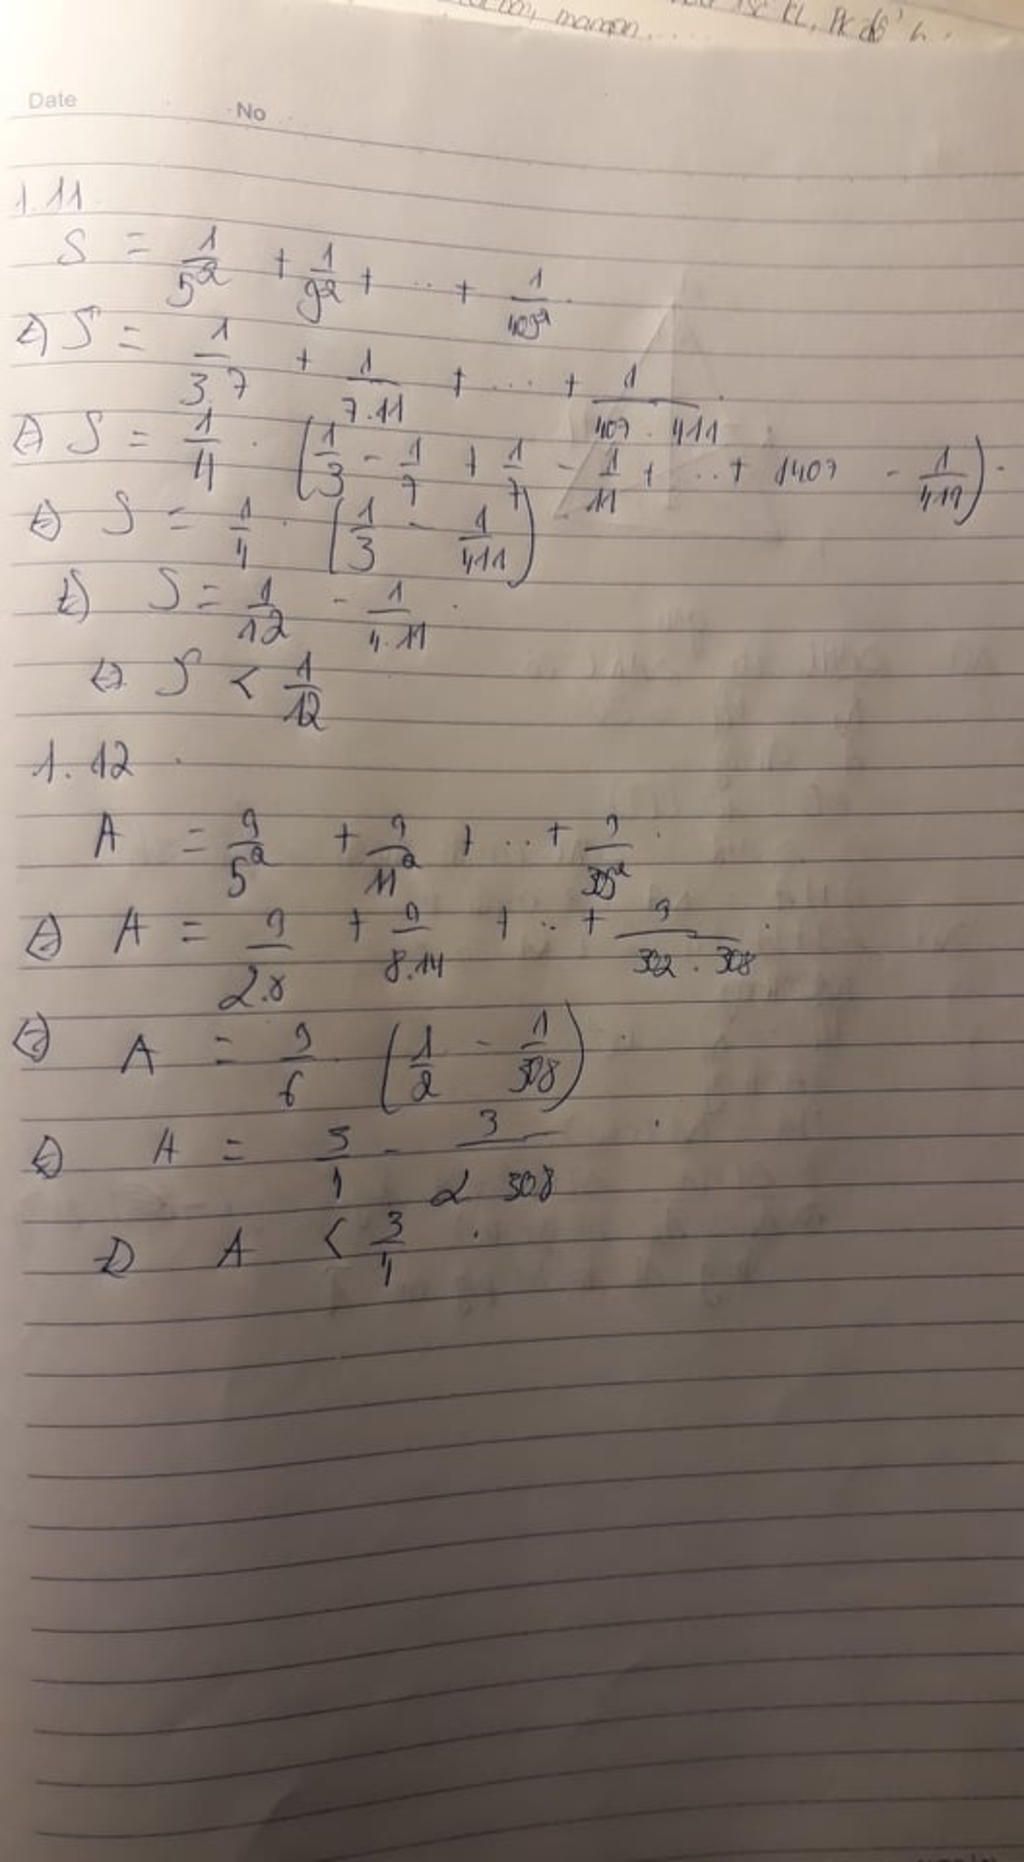 Date No
1.11
S = 1/5² + 1/9² + ... + 1/409²
⇔ S = 1/3.7 + 1/7.11 + ... + 1/407.411
⇔ S = 1/4 . (1/3 - 1/7 + 1/7 - 1/11 + ... + 1407 - 1/411)
⇔ S = 1/4 . (1/3 - 1/411)
⇔ S = 1/12 - 1/4.11
⇔ S < 1/12
1.12
A = 9/5² + 9/11² + ... + 9/305²
⇔ A = 9/2.8 + 9/8.14 + .. + 9/302.308
⇔ A = 9/6 . (1/2 - 1/308)
⇔ A = 3/4 - 3/2 308
⇔ A < 3/4